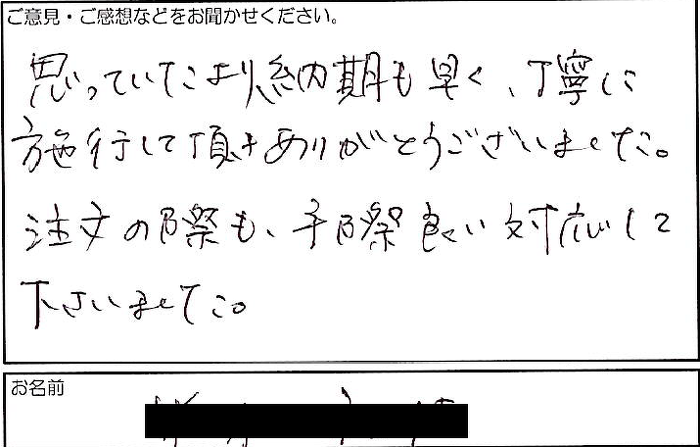 ご意見・ご感想などをお聞かせください。
思っていたより納期も早く、丁寧に
施行して頂きありがとうございました。
注文の際も、手際良い対応して
下さいました。
お名前